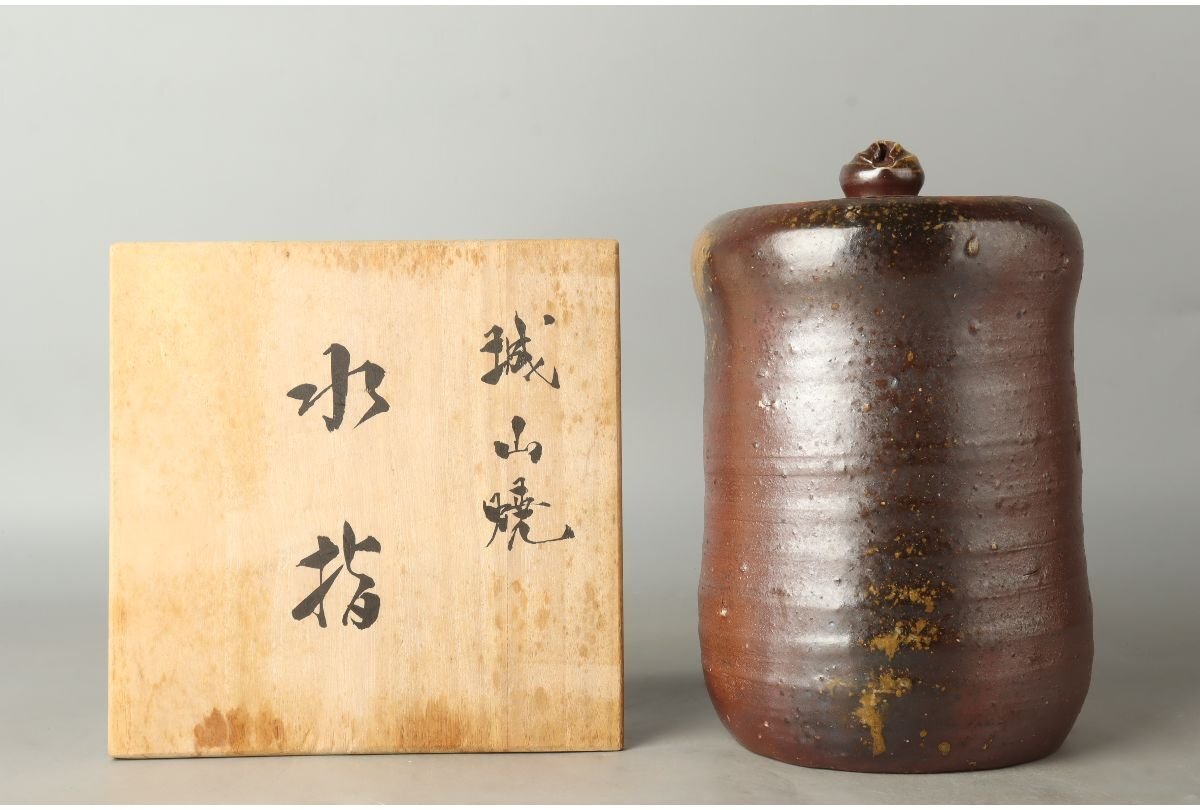 城山焼
水指